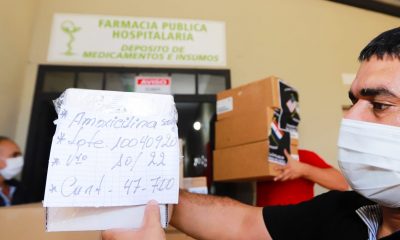 FARMACIA PUBLICA
HOSPITALARIA
DEPOSITO DE
MEDICAMENTOS E INSUMOS
AVISO
* Amoxicilina
* Lote. 10040920
* Vto 10/22
* Cant. - 47-700